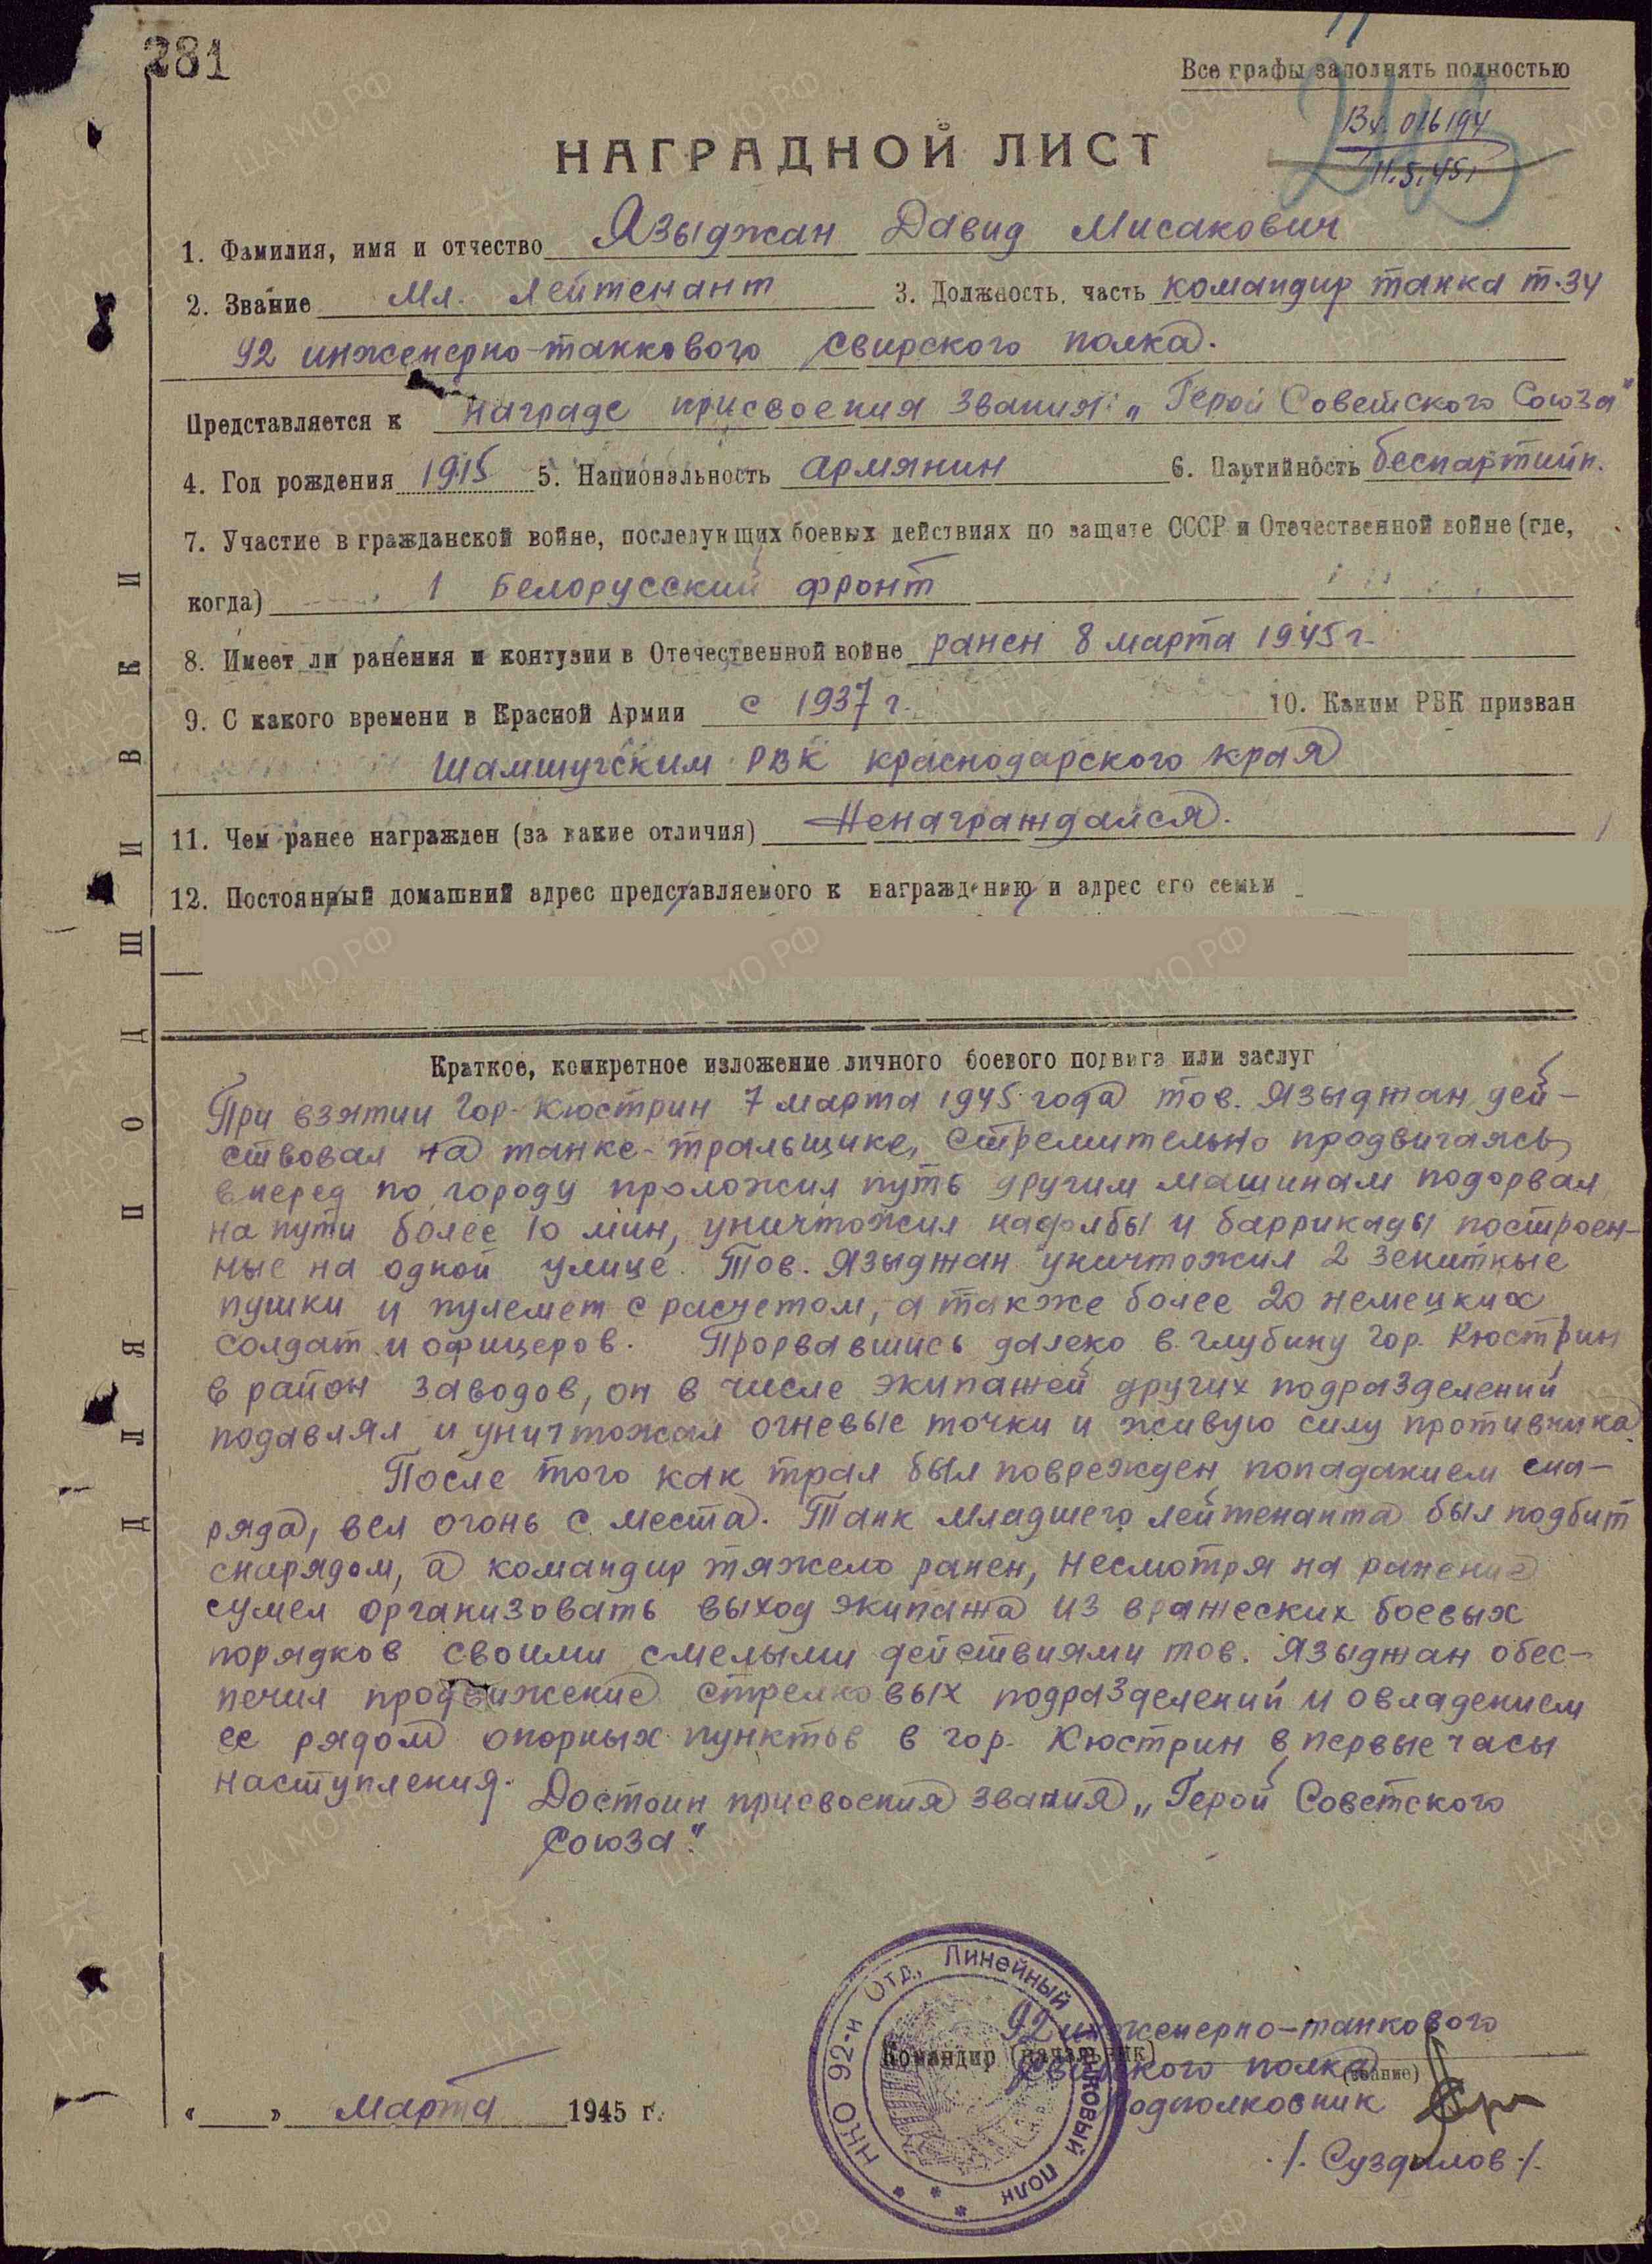 281
Все графы заполнять полностью
Вх. 016194
11.5.45г
НАГРАДНОЙ ЛИСТ
1. Фамилия, имя и отчество Языджан Давид Мисакович
2. Звание Мл. лейтенант 3. Должность, часть командир танка т-34
92 инженерно-танкового свирского полка.
Представляется к награде присвоения звания: „Герой Советского Союза"
4. Год рождения 1915 5. Национальность армянин 6. Партийность беспартийн.
7. Участие в гражданской войне, последующих боевых действиях по защите СССР и Отечественной войне (где,
когда) 1 Белорусский фронт
8. Имеет ли ранения и контузии в Отечественной войне ранен 8 марта 1945 г.
9. С какого времени в Красной Армии с 1937 г. 10. Каким РВК призван
РВК краснодарского края
11. Чем ранее награжден (за какие отличия) Ненаграждался.
12. Постоянный домашний адрес представляемого к награждению и адрес его семьи
Краткое, конкретное изложение личного боевого подвига или заслуг
При взятии гор. Кюстрин 7 марта 1945 года тов. Языджан дей-
ствовал на танке-тральщике, стремительно продвигаясь
вперед по городу проложил путь другим машинам подорвал
на пути более 10 мин, уничтожил надолбы и баррикады построен-
ные на одной улице. Тов. Языджан уничтожил 2 зенитные
пушки и пулемет с расчетом, а также более 20 немецких
солдат и офицеров. Прорвавшись далеко в глубину гор. Кюстрин
в район заводов, он в числе экипажей других подразделений
подавлял и уничтожал огневые точки и живую силу противника.
После того как трал был поврежден попаданием сна-
ряда, вел огонь с места. Танк младшего лейтенанта был подбит
снарядом, а командир тяжело ранен, несмотря на ранение
сумел организовать выход экипажа из вражеских боевых
порядков своими смелыми действиями тов. Языджан обес-
печил продвижение стрелковых подразделений и овладением
ее рядом опорных пунктов в гор. Кюстрин в первые часы
наступления.
Достоин присвоения звания „Герой Советского
Союза".
НКО 92-й Отд. Линейный Танковый полк
92 инженерно-танкового
Командир (начальник)
свирского полка
(звание)
подполковник
/. Суздалов ./.
« » марта 1945 г.
ДЛЯ ПОДШИВКИ
ЦА МО РФ
ПАМЯТЬ НАРОДА